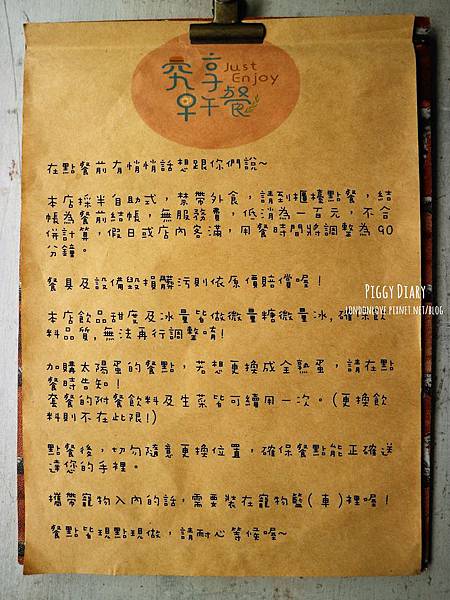 究享 Just Enjoy
早午餐
在點餐前有悄悄話想跟你們說~
本店採半自助式，禁帶外食，請到櫃檯點餐，結
帳為餐前結帳，無服務費，低消為一百元，不合
併計算，假日或店內客滿，用餐時間將調整為90
分鐘。
餐具及設備毀損髒污則依原價賠償喔！
本店飲品甜度及冰量皆做微量糖微量冰,確保飲
料品質,無法再行調整唷!
加購太陽蛋的餐點，若想更換成全熟蛋，請在點
餐時告知！
套餐的附餐飲料及生菜皆可續用一次。(更換飲
料則不在此限!)
點餐後，切勿隨意更換位置，確保餐點能正確送
達您的手裡。
攜帶寵物入內的話，需要裝在寵物籃(車)裡喔！
餐點皆現點現做，請耐心等候喔~
PIGGY DIARY
LONDINLOVE.PIXNET.NET/BLOG